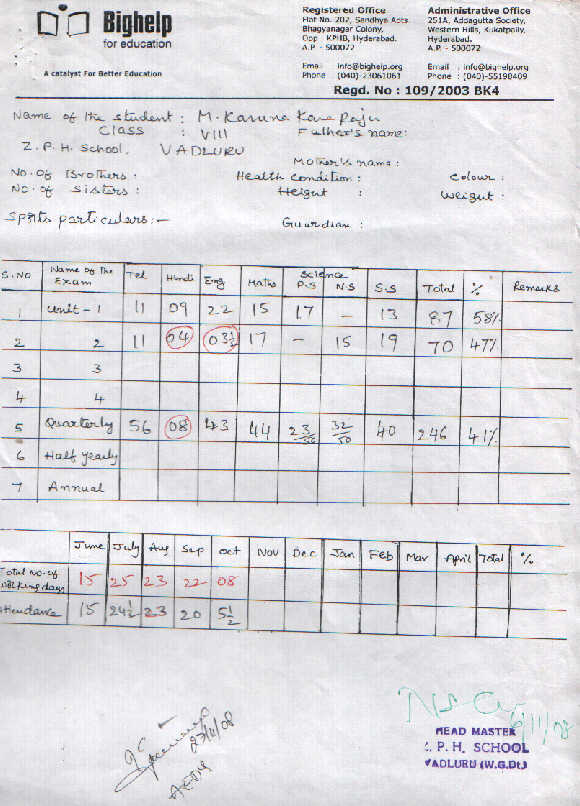 Bighelp
for education
A catalyst For Better Education
Registered Office
Flat No. 202, Sandhya Apts.
Bhagyanagar Colony,
Opp : KPHB, Hyderabad.
A.P - 500072
Email : info@bighelp.org
Phone : (040)-23061061
Administrative Office
251A, Addagutta Society,
Western Hills, Kukatpally,
Hyderabad.
A.P - 500072
Email : info@bighelp.org
Phone : (040)-55198409
Regd. No : 109/2003 BK4
Name of the student : M. Karuna Kara Raju
Class : VIII Father's name:
Z.P.H. School, VADLURU
Mother's name :
No. of Brothers : Health Condition : Colour :
No. of Sisters : Height : Weight :
Sports particulars :- Guardian :
S.NO Name of the Exam Tel Hindi Eng Maths Science P.S N.S S.S Total % Remarks
1 Unit - 1 11 09 22 15 17 - 13 87 58%
2 2 11 04 03½ 17 - 15 19 70 47%
3 3
4 4
5 Quarterly 56 08 43 44 23/50 32/50 40 246 41%
6 Half yearly
7 Annual
June July Aug Sep Oct Nov Dec Jan Feb Mar April Total %
Total No. of Working days 15 25 23 22 08
Attendance 15 24½ 23 20 5½
6/11/08
HEAD MASTER
Z. P. H. SCHOOL
VADLURU (W.G.Dt.)